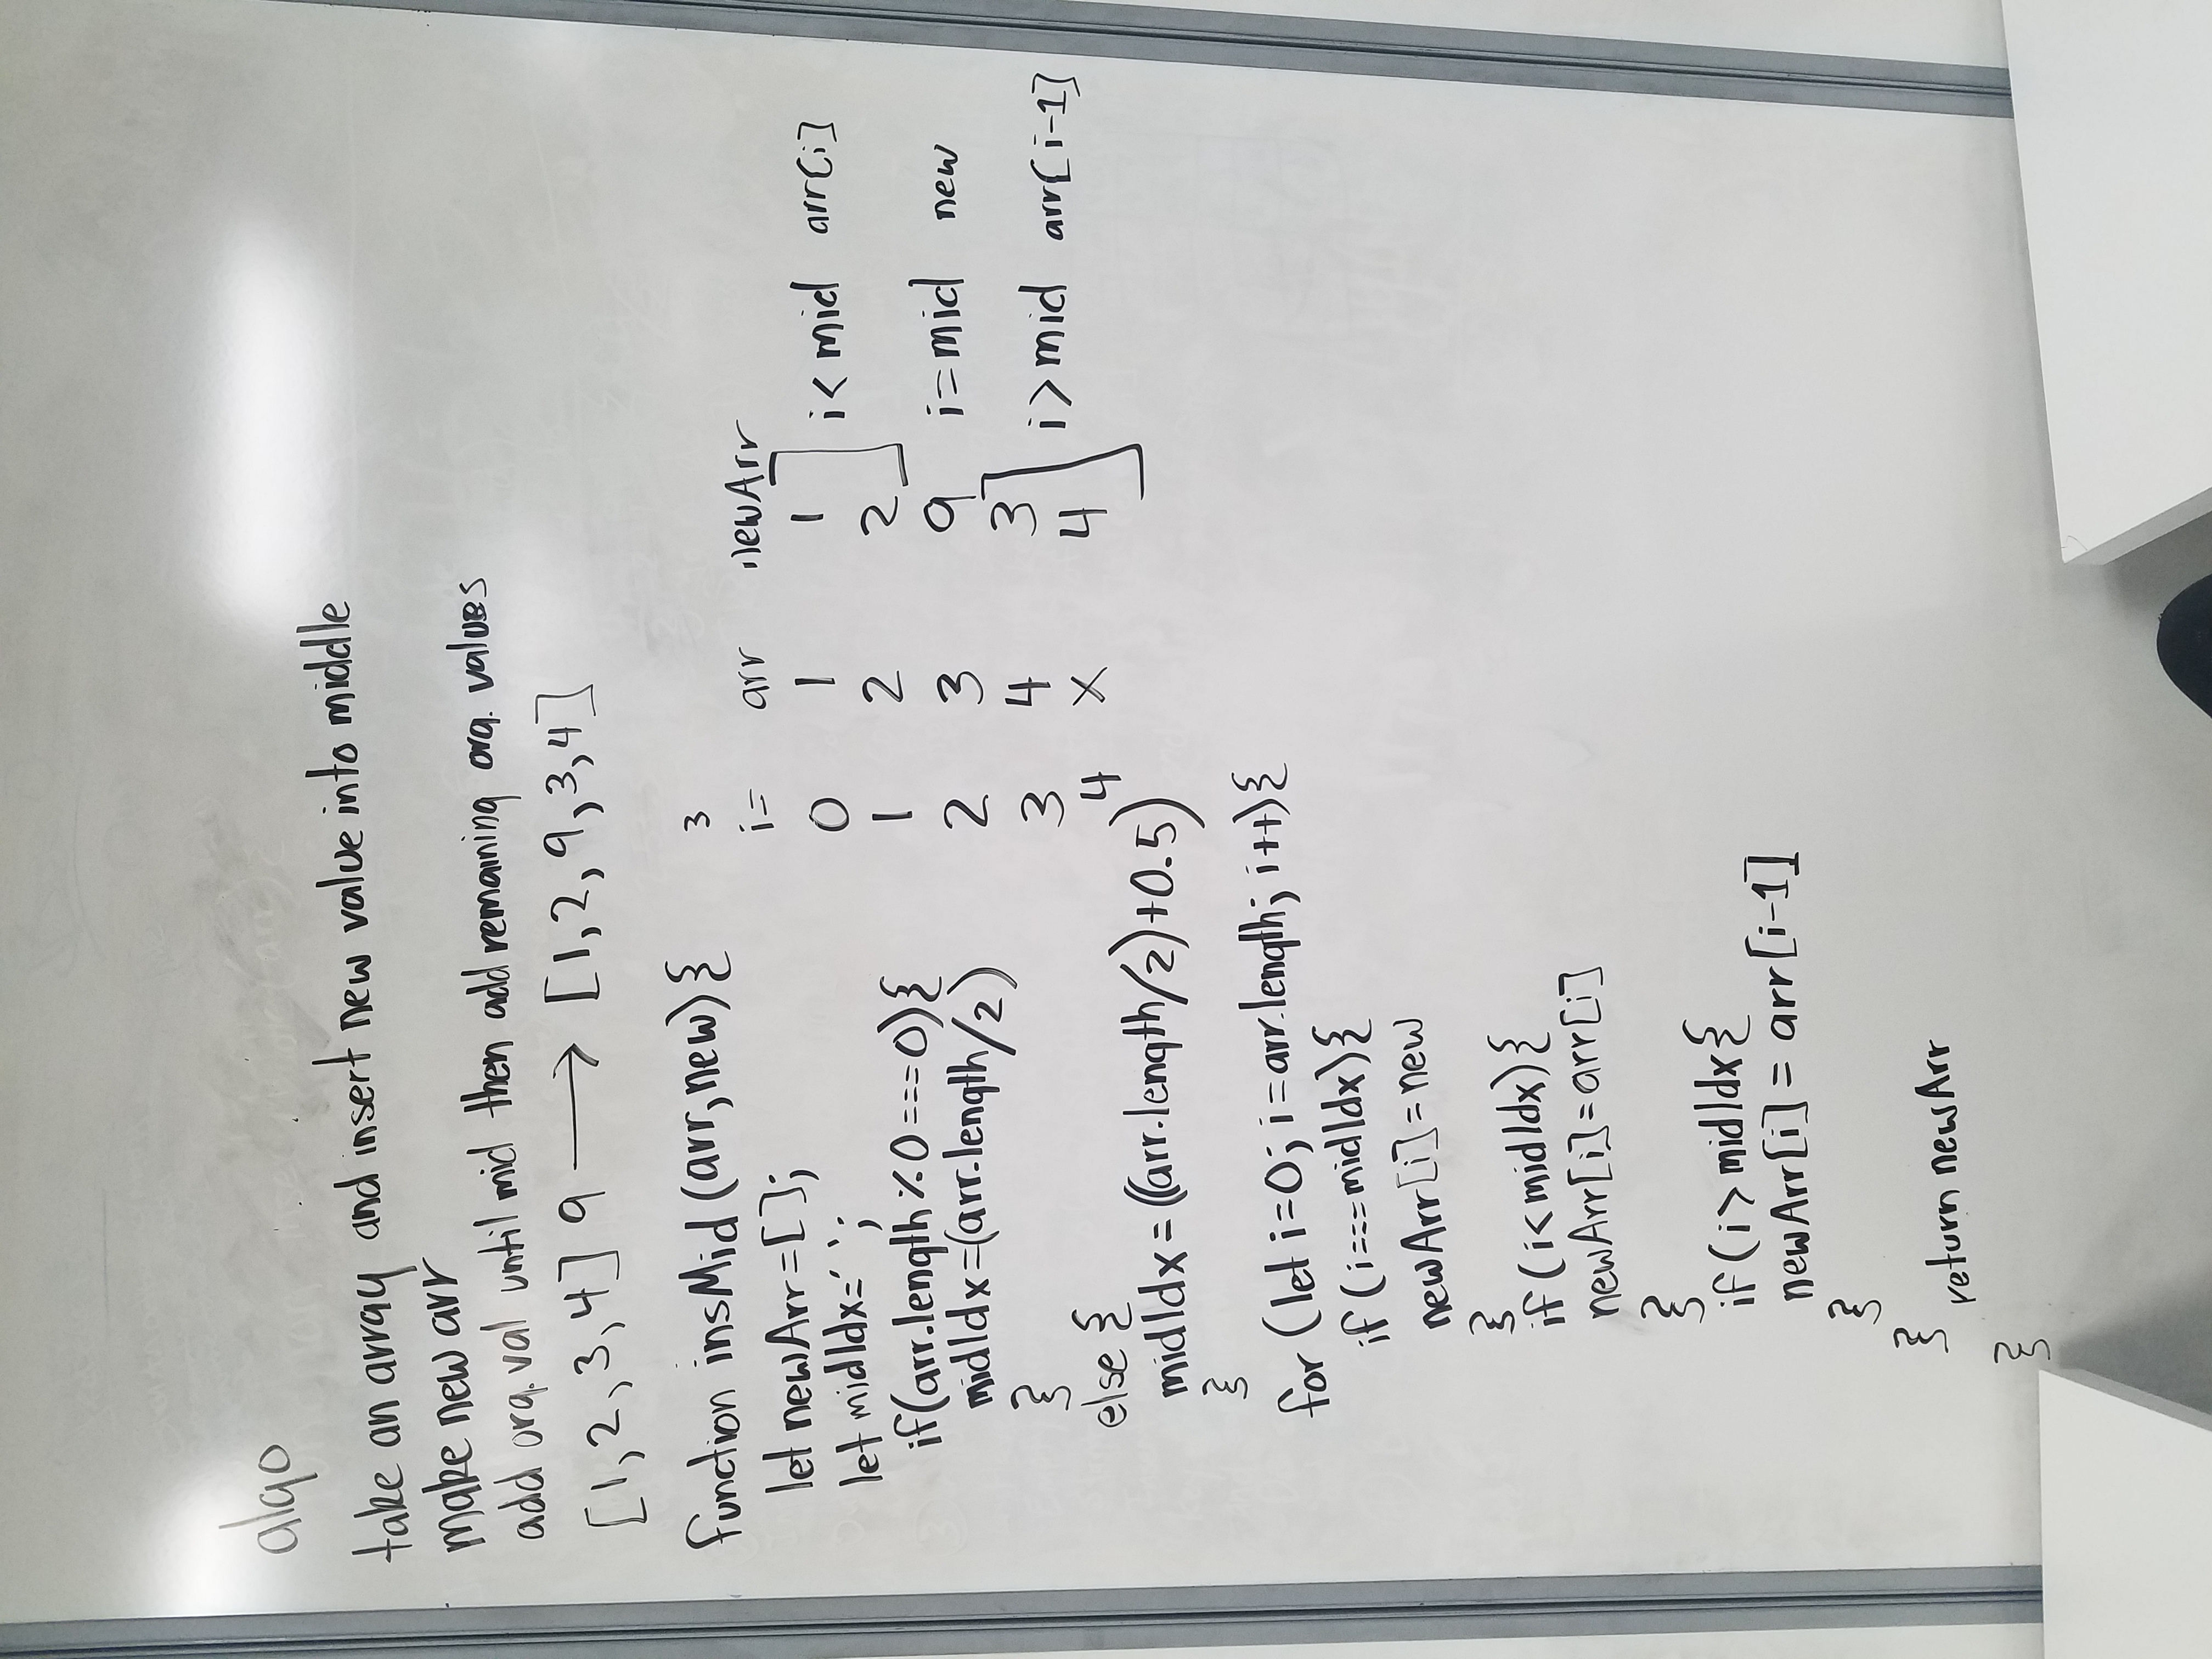 algo
take an array and insert new value into middle
make new arr
add org. val until mid then add remaining org. values
[1,2,3,4] 9 → [1,2,9,3,4]
function insMid (arr,new){
let newArr=[];
let midIdx=' ';
if(arr.length % 0===0){
midIdx=(arr.length/2)
}
else {
midIdx = ((arr.length/2)+0.5)
}
for (let i=0; i=arr.length; i++){
if (i===midIdx){
newArr[i]=new
}
if (i<midIdx){
newArr[i]=arr[i]
}
if (i>midIdx{
newArr[i] = arr[i-1]
}
}
return newArr
}
3
i= arr newArr
0 1 1
i< mid arr[i]
1 2 2
2 3 9 i=mid new
3 4 3
i>mid arr[i-1]
4 X 4